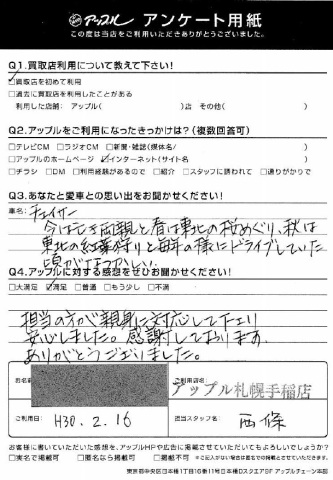 アップル アンケート用紙
この度は当店をご利用いただきありがとうございました。
Q1.買取店利用について教えて下さい!
☑買取店を初めて利用
□過去に買取店を利用したことがある
利用した店舗: アップル( )店 その他( )
Q2.アップルをご利用になったきっかけは?(複数回答可)
□テレビCM □ラジオCM □新聞・雑誌(媒体名/ )
□アップルのホームページ ☑インターネット(サイト名 )
□チラシ □DM □利用経験があるので □紹介 □スタッフに誘われて □通りがかりで
Q3.あなたと愛車との思い出をお聞かせください!
車名: チェイサー
今は亡き両親と春は東北の桜めぐり、秋は
東北の紅葉狩りと毎年の様にドライブしていた
頃がなつかしい。
Q4.アップルに対する感想をぜひお聞かせください!
□大満足 ☑満足 □普通 □もう少し □不満
担当の方が親身に対応して下さり
安心しました。感謝しております。
ありがとうございました。
アップル札幌手稲店
ご利用日 H30.2.16 担当スタッフ名 西條
お客様に書いていただいた感想を、アップルHPや広告に掲載させていただいてもよろしいでしょうか?
□実名で掲載可 □匿名なら掲載可 □掲載不可
東京都中央区日本橋1丁目16番11号日本橋Dスクエア8F アップルチェーン本部